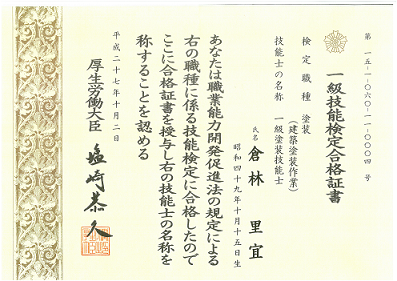 第一五-一-〇六〇-一一-〇〇〇四号
一級技能検定合格証書
検定職種 塗装
（建築塗装作業）
技能士の名称 一級塗装技能士
氏名 倉林里宜
昭和四十九年十月十五日生
あなたは職業能力開発促進法の規定による
右の職種に係る技能検定に合格したので
ここに合格証書を授与し右の技能士の名称を
称することを認める
平成二十七年十月二日
厚生労働大臣 塩崎恭久